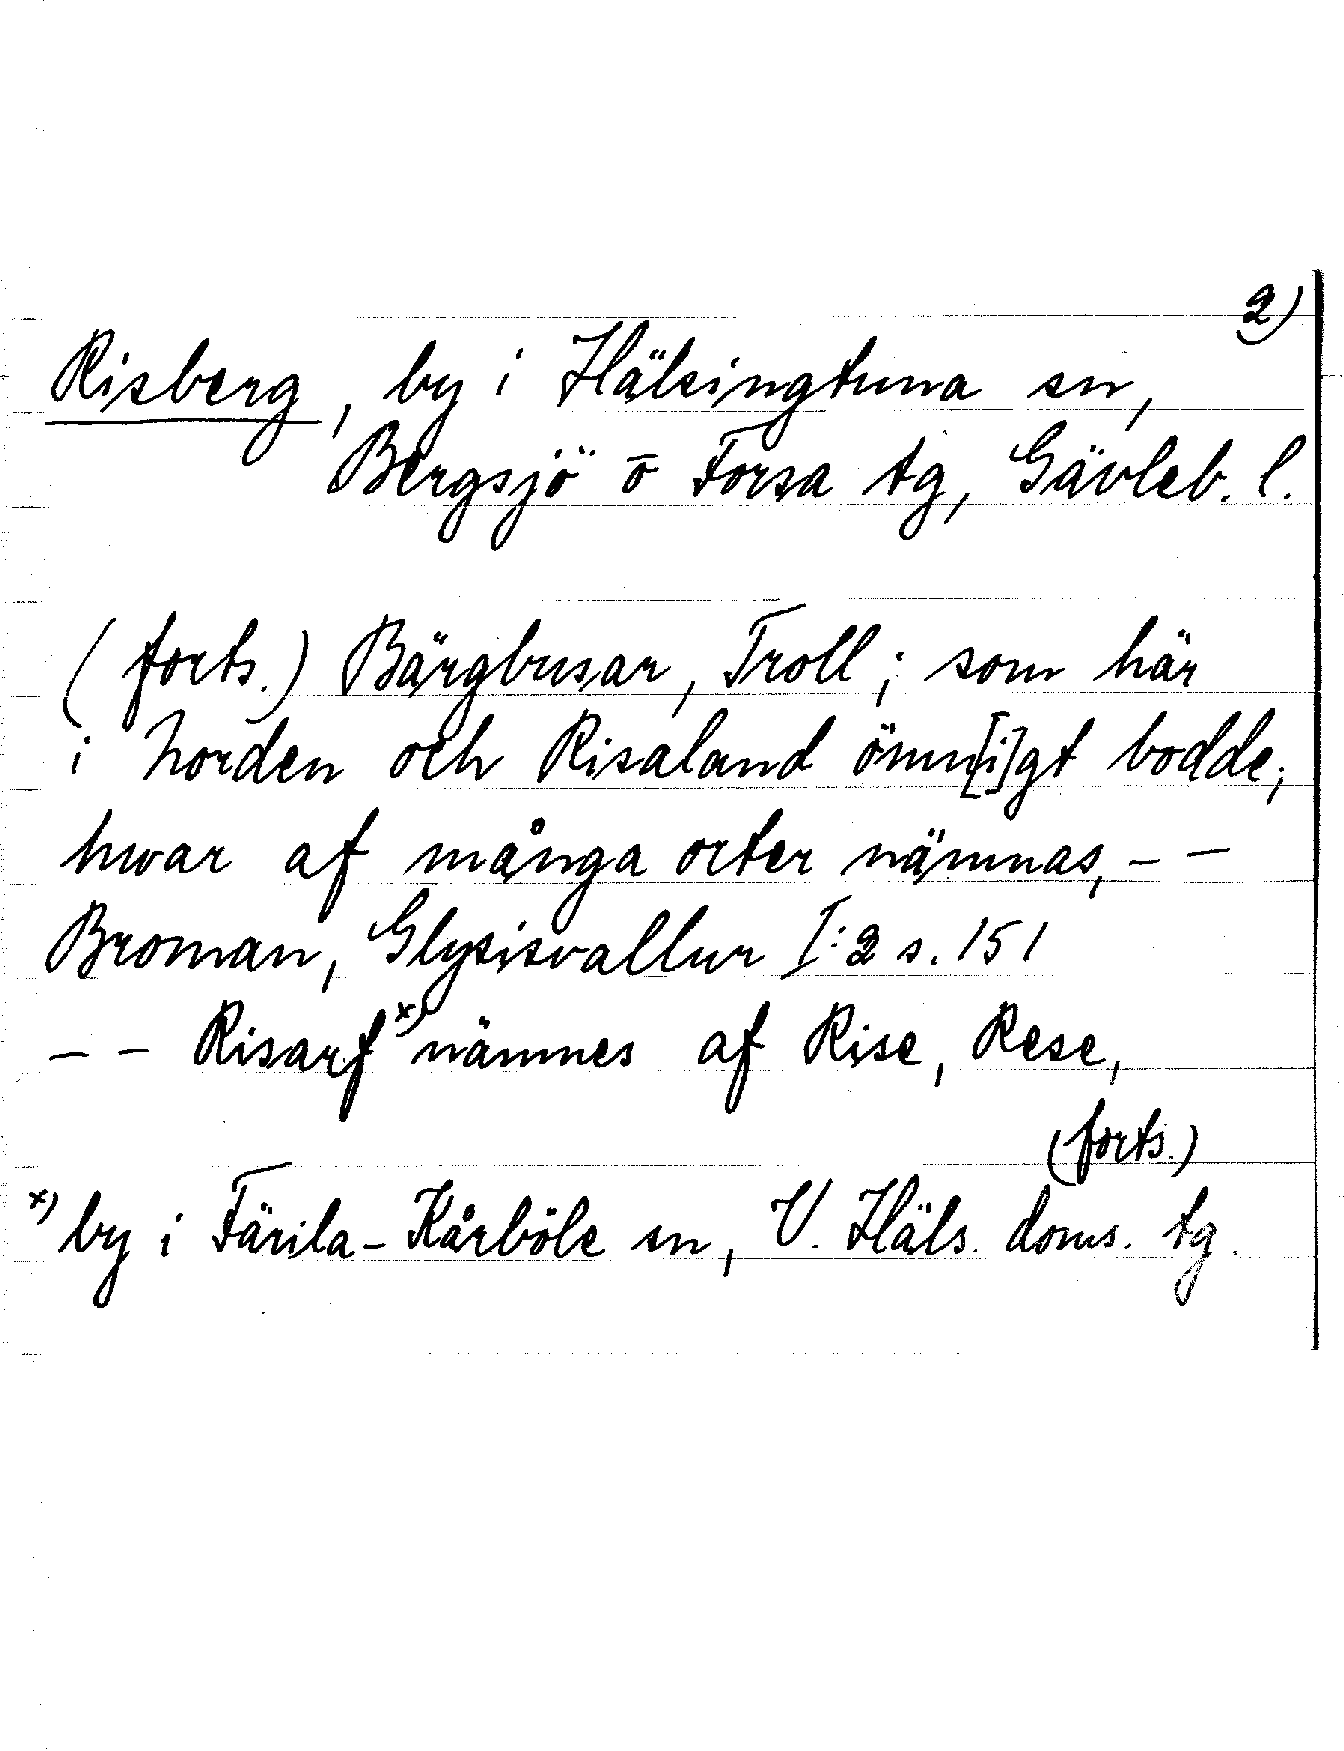 2)
Risberg, by i Hälsingtuna sn,
Bergsjö o Forsa tg, Gävleb. l.
(forts.) Bärgbusar, Troll; som här
i Norden och Risaland ömn[i]gt bodde;
hwar af många orter nämnas, - -
Broman, Glysisvallur I:2 s. 151
- - Risarf x) nämnes af Rise, Rese,
(forts.)
x) by i Färila-Kårböle sn, V. Häls. doms. tg.